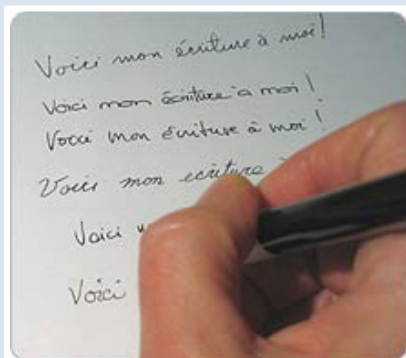 Voici mon écriture à moi!
Voici mon écriture à moi!
Voici mon écriture à moi!
Voici mon ecriture
Voici
Voici